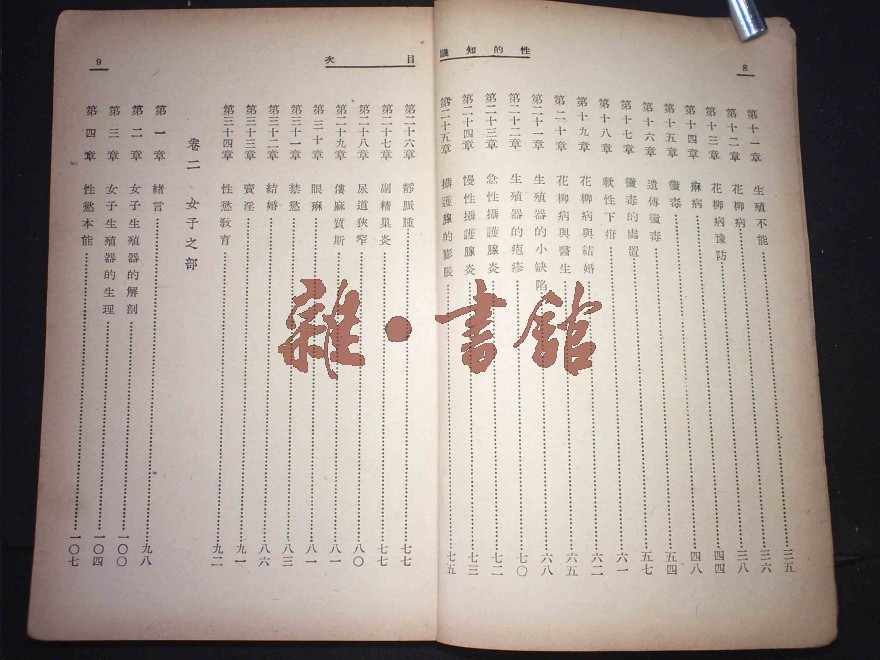 8
性的知識
第十一章 生殖不能……三五
第十二章 花柳病……三六
第十三章 花柳病豫防……三八
第十四章 痳病……四四
第十五章 黴毒……四八
第十六章 遺傳黴毒……五四
第十七章 黴毒的處置……五七
第十八章 軟性下疳……六一
第十九章 花柳病與結婚……六二
第二十章 花柳病與醫生……六五
第二十一章 生殖器的小缺陷……六八
第二十二章 生殖器的疱疹……七〇
第二十三章 急性攝護腺炎……七二
第二十四章 慢性攝護腺炎……七三
第二十五章 攝護腺的膨脹……七五
目次
9
第二十六章 靜脈腫……七七
第二十七章 副精巢炎……七七
第二十八章 尿道狹窄……八〇
第二十九章 僂麻質斯……八一
第三十章 眼痳……八一
第三十一章 禁慾……八三
第三十二章 結婚……八六
第三十三章 賣淫……九一
第三十四章 性慾教育……九二
卷二 女子之部
第一章 緒言……九八
第二章 女子生殖器的解剖……一〇〇
第三章 女子生殖器的生理……一〇四
第四章 性慾本能……一〇七
雜·書館